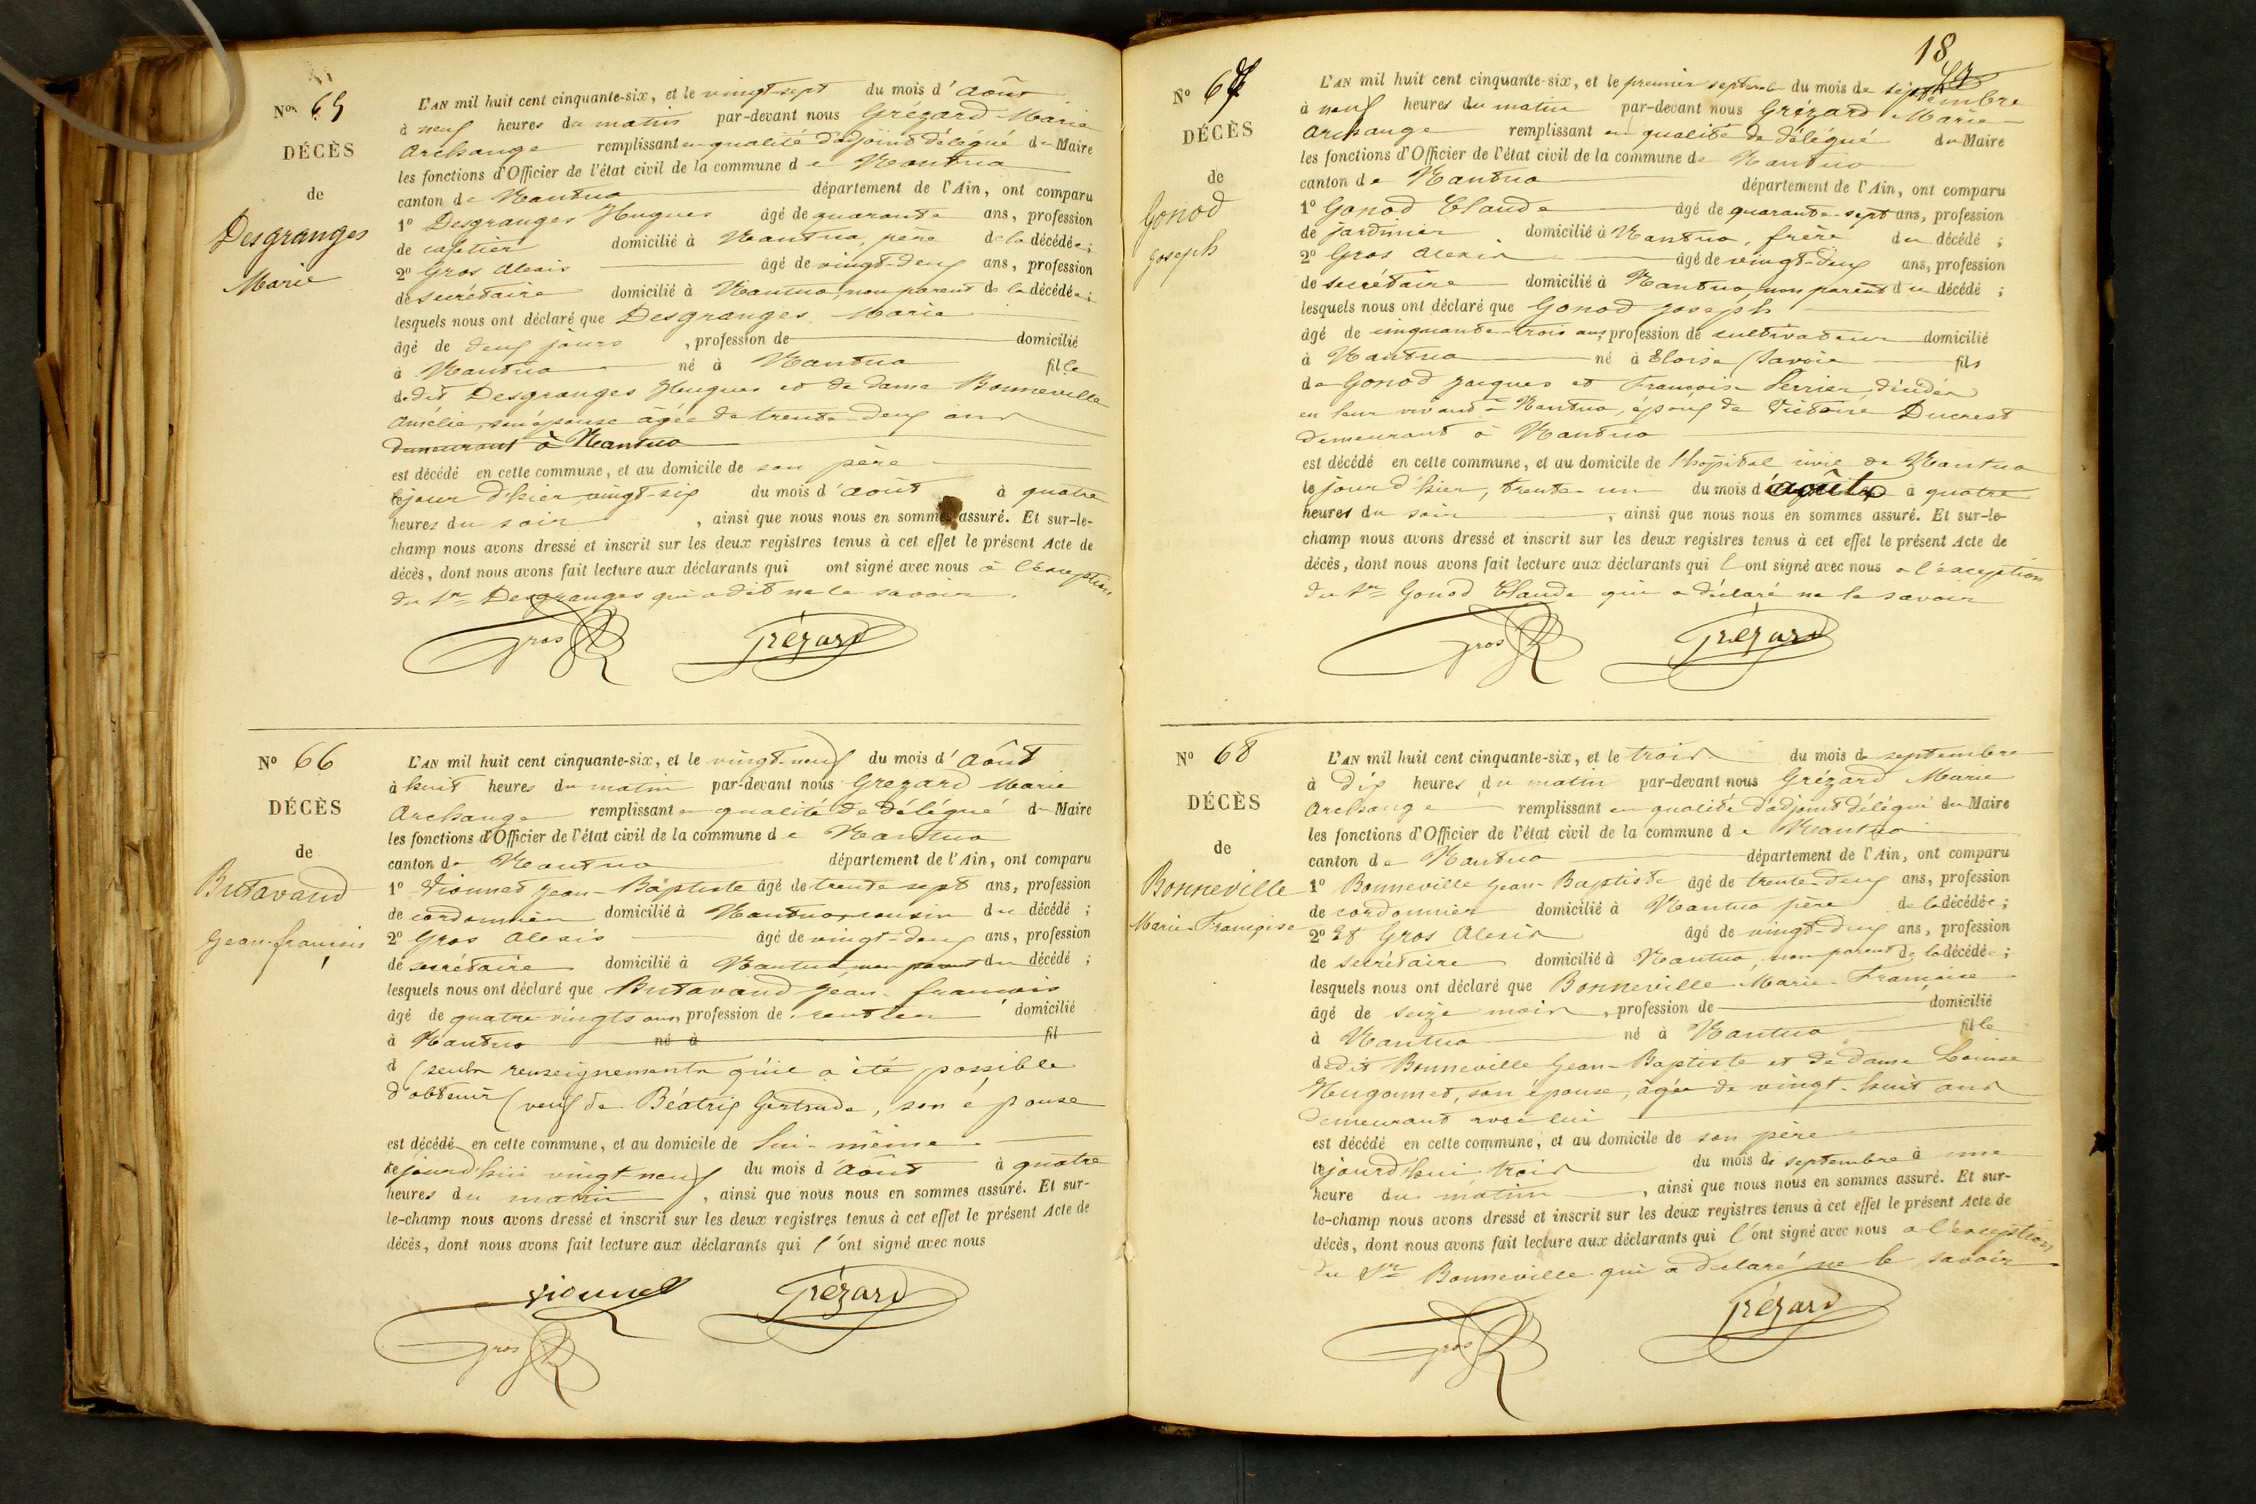 Nos 65
DÉCÈS
de
Desgranges
Marie
L'AN mil huit cent cinquante-six, et le vingt-sept du mois d'août
à neuf heures du matin par-devant nous Grézard Marie
Archange remplissant en qualité d'adjoint délégué du Maire
les fonctions d'Officier de l'état civil de la commune de Nantua
canton de Nantua département de l'Ain, ont comparu
1° Desgranges Hugues âgé de quarante ans, profession
de cafetier domicilié à Nantua, père de la décédée;
2° Gros Alexis âgé de vingt-deux ans, profession
de secrétaire domicilié à Nantua, non parent de la décédée;
lesquels nous ont déclaré que Desgranges Marie
âgé de deux jours, profession de domicilié
à Nantua né à Nantua fille
de dit Desgranges Hugues et de dame Bonneville
Amélie, son épouse âgée de trente-deux ans
demeurant à Nantua
est décédé en cette commune, et au domicile de son père
le jour d'hier vingt-six du mois d'août à quatre
heures du soir, ainsi que nous nous en sommes assuré. Et sur-le-
champ nous avons dressé et inscrit sur les deux registres tenus à cet effet le présent Acte de
décès, dont nous avons fait lecture aux déclarants qui ont signé avec nous à l'exception
du Sr Desgranges qui a dit ne le savoir.
Gros Grézard
N° 66
DÉCÈS
de
Butavand
Jean-françois
L'AN mil huit cent cinquante-six, et le vingt-neuf du mois d'Août
à huit heures du matin par-devant nous Grezard Marie
Archange remplissant en qualité de délégué du Maire
les fonctions d'Officier de l'état civil de la commune de Nantua
canton de Nantua département de l'Ain, ont comparu
1° Vionnet Jean-Baptiste âgé de trente-sept ans, profession
de cordonnier domicilié à Nantua, cousin du décédé;
2° Gros Alexis âgé de vingt-deux ans, profession
de secrétaire domicilié à Nantua, non parent du décédé;
lesquels nous ont déclaré que Butavand Jean-francois
âgé de quatre vingts ans, profession de rentier domicilié
à Nantua né à fil
d (seuls renseignements qu'il a été possible
d'obtenir (veuf de Béatrix Gertrude, son épouse
est décédé en cette commune, et au domicile de lui-même
le jourd'hui vingt-neuf du mois d'Août à quatre
heures du matin, ainsi que nous nous en sommes assuré. Et sur-
le-champ nous avons dressé et inscrit sur les deux registres tenus à cet effet le présent Acte de
décès, dont nous avons fait lecture aux déclarants qui l'ont signé avec nous
Vionnet Grézard
Gros
18
N° 67
DÉCÈS
de
Gonod
Joseph
L'AN mil huit cent cinquante-six, et le premier septembre du mois de septembre
à neuf heures du matin par-devant nous Grézard Marie
Archange remplissant en qualité de délégué du Maire
les fonctions d'Officier de l'état civil de la commune de Nantua
canton de Nantua département de l'Ain, ont comparu
1° Gonod Claude âgé de quarante-sept ans, profession
de jardinier domicilié à Nantua, frère du décédé;
2° Gros Alexis âgé de vingt-deux ans, profession
de secrétaire domicilié à Nantua, non parent du décédé;
lesquels nous ont déclaré que Gonod Joseph
âgé de cinquante-trois ans, profession de cultivateur domicilié
à Nantua né à Eloise (Savoie fils
de Gonod Jacques et Françoise Perrier, décédés
en leur vivant à Nantua, époux de Victoire Ducrest
demeurant à Nantua
est décédé en cette commune, et au domicile de l'hôpital civil de Nantua
le jour d'hier, trente-un du mois d'août à quatre
heures du soir, ainsi que nous nous en sommes assuré. Et sur-le-
champ nous avons dressé et inscrit sur les deux registres tenus à cet effet le présent Acte de
décès, dont nous avons fait lecture aux déclarants qui l'ont signé avec nous a l'exception
du Sr Gonod Claude qui a déclaré ne le savoir
Gros Grézard
N° 68
DÉCÈS
de
Bonneville
Marie-Françoise
L'AN mil huit cent cinquante-six, et le trois du mois de septembre
à dix heures du matin par-devant nous Grézard Marie
Archange remplissant en qualité d'adjoint délégué du Maire
les fonctions d'Officier de l'état civil de la commune de Nantua
canton de Nantua département de l'Ain, ont comparu
1° Bonneville Jean-Baptiste âgé de trente-deux ans, profession
de cordonnier domicilié à Nantua père de la décédée;
2° Et Gros Alexis âgé de vingt-deux ans, profession
de secrétaire domicilié à Nantua, non parent de la décédée;
lesquels nous ont déclaré que Bonneville Marie-Françoise
âgé de seize mois, profession de domicilié
à Nantua né à Nantua fille
de dit Bonneville Jean-Baptiste et de dame Louise
Hugonnet, son épouse, âgée de vingt-huit ans
demeurant avec lui
est décédé en cette commune, et au domicile de son père
le jourd'hui trois du mois de septembre à une
heure du matin, ainsi que nous nous en sommes assuré. Et sur-
le-champ nous avons dressé et inscrit sur les deux registres tenus à cet effet le présent Acte de
décès, dont nous avons fait lecture aux déclarants qui l'ont signé avec nous a l'exception
du Sr Bonneville qui a déclaré ne le savoir
Gros Grézard